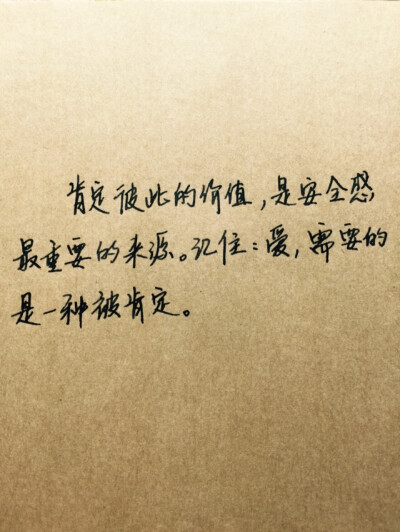 肯定彼此的价值,是安全感
最重要的来源。记住:爱,需要的
是一种被肯定。